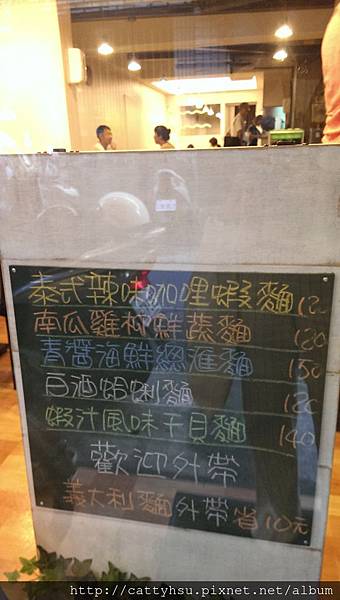 泰式辣味咖哩蝦麵 120
南瓜雞柳鮮蔬麵 120
青醬海鮮總滙麵 150
白酒蛤蜊麵 120
蝦汁風味干貝麵 140
歡迎外帶
義大利麵外帶省10元
http://cattyhsu.pixnet.net/album